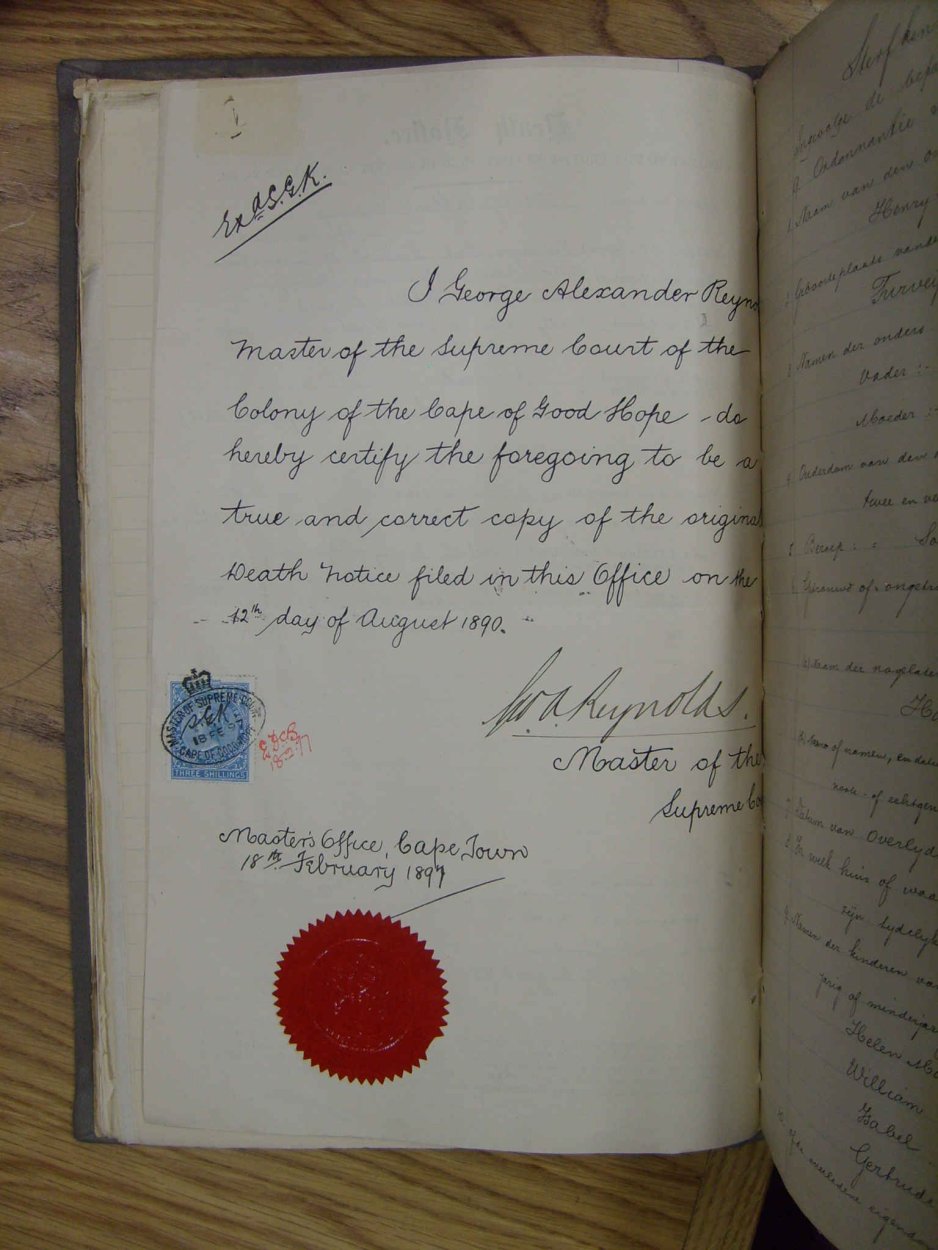 Exd S.G.K.
I George Alexander Reyno
Master of the Supreme Court of the
Colony of the Cape of Good Hope - do
hereby certify the foregoing to be a
true and correct copy of the original
Death Notice filed in this Office on the
12th day of August 1890.
Geo. A. Reynolds.
Master of the
Supreme Co
MASTER OF SUPREME COURT
18 FE 97
CAPE OF GOOD HOPE
THREE SHILLINGS
18-2-97
Master's Office, Cape Town
18th February 1897
Death Notice.
Sterf
Ingevolge de bepa
Ordonnantie
1. Naam van den o
Henry
2. Geboorteplaats vande
Turvey
3. Namen der ouders
Vader :-
Moeder :-
4. Ouderdom van den
twee en ve
5. Beroep : -
6. Getrouwd of ongetr
a) Naam der nagelaten
b) Naam of namen, en datu
noote - of echtgen
7. Datum van Overlyd
8. In welk huis of waa
zijn tydelyk
9. Namen der kinderen va
jarig of minderjar
Helen
William
Isabel
Gertrude